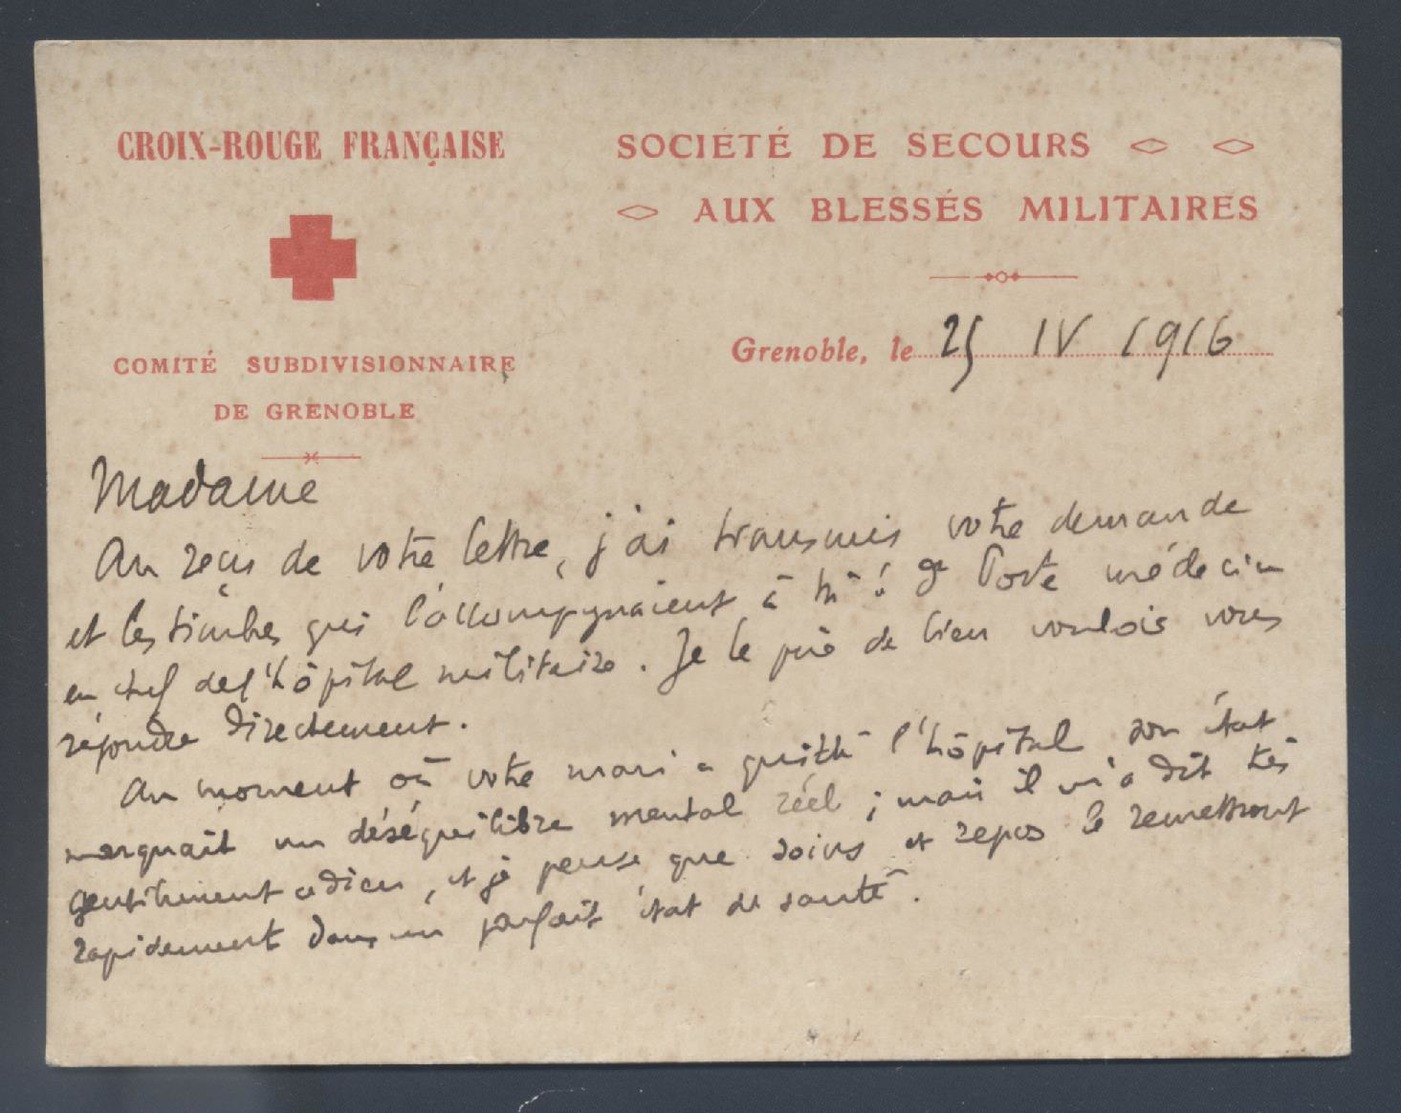 CROIX-ROUGE FRANÇAISE
SOCIÉTÉ DE SECOURS
AUX BLESSÉS MILITAIRES
COMITÉ SUBDIVISIONNAIRE
DE GRENOBLE
Grenoble, le 25 IV 1916
Madame
Au reçu de votre lettre, j'ai transmis votre demande
et les timbres qui l'accompagnaient à Porte médecin
en chef de l'hôpital militaire. Je le prie de bien vouloir vous
répondre directement.
Au moment où votre mari a quitté l'hôpital son état
marquait un déséquilibre mental réel ; mais il m'a dit très
gentiment adieu, et je pense que soins et repos le remettront
rapidement dans un parfait état de santé.